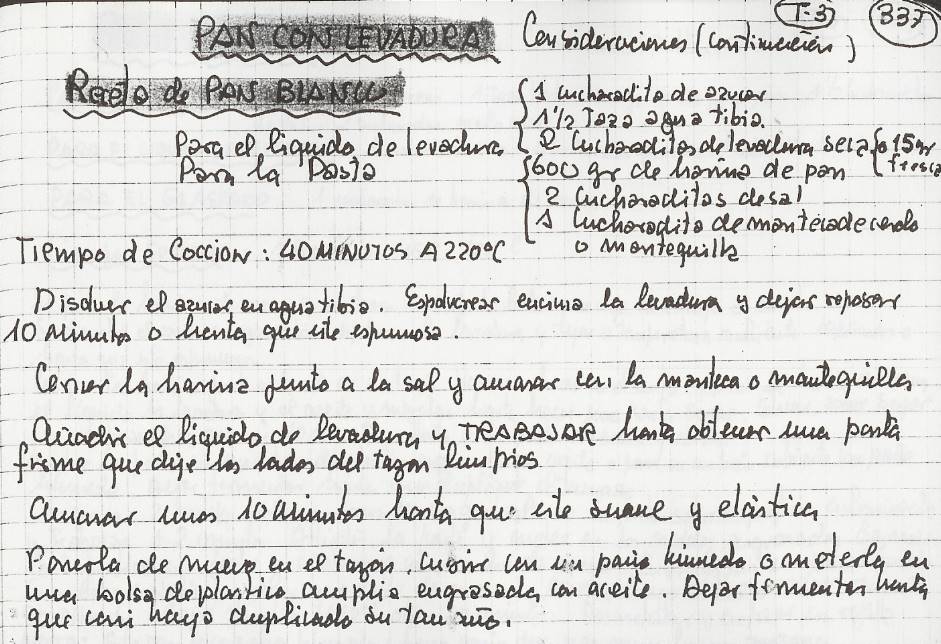 T-3 337
PAN CON LEVADURA Consideraciones (continuación)
Receta de PAN BLANCO
1 cucharadita de azucar
1 1/2 Taza agua tibia.
Para el liquido de levadura 2 Cucharaditas de levadura seca o 15 gr fresca
Para la Pasta 600 gr de harina de pan
2 Cucharaditas de sal
1 Cucharadita de manteca de cerdo
o mantequilla
Tiempo de Coccion : 40 MINUTOS A 220ºC
Disolver el azucar en agua tibia. Espolvorear encima la levadura y dejar reposar
10 Minutos o hasta que este espumosa.
Cerner la harina junto a la sal y amasar con la manteca o mantequilla.
Añadir el liquido de levadura y TRABAJAR hasta obtener una pasta
firme que deje los lados del tazon limpios
Amasar unos 10 minutos hasta que este suave y elástica
Ponerla de nuevo en el tazón, cubrir con un paño humedo o meterla en
una bolsa de plastico amplia engrasada con aceite. Dejar fermentar hasta
que casi haya duplicado su tamaño.